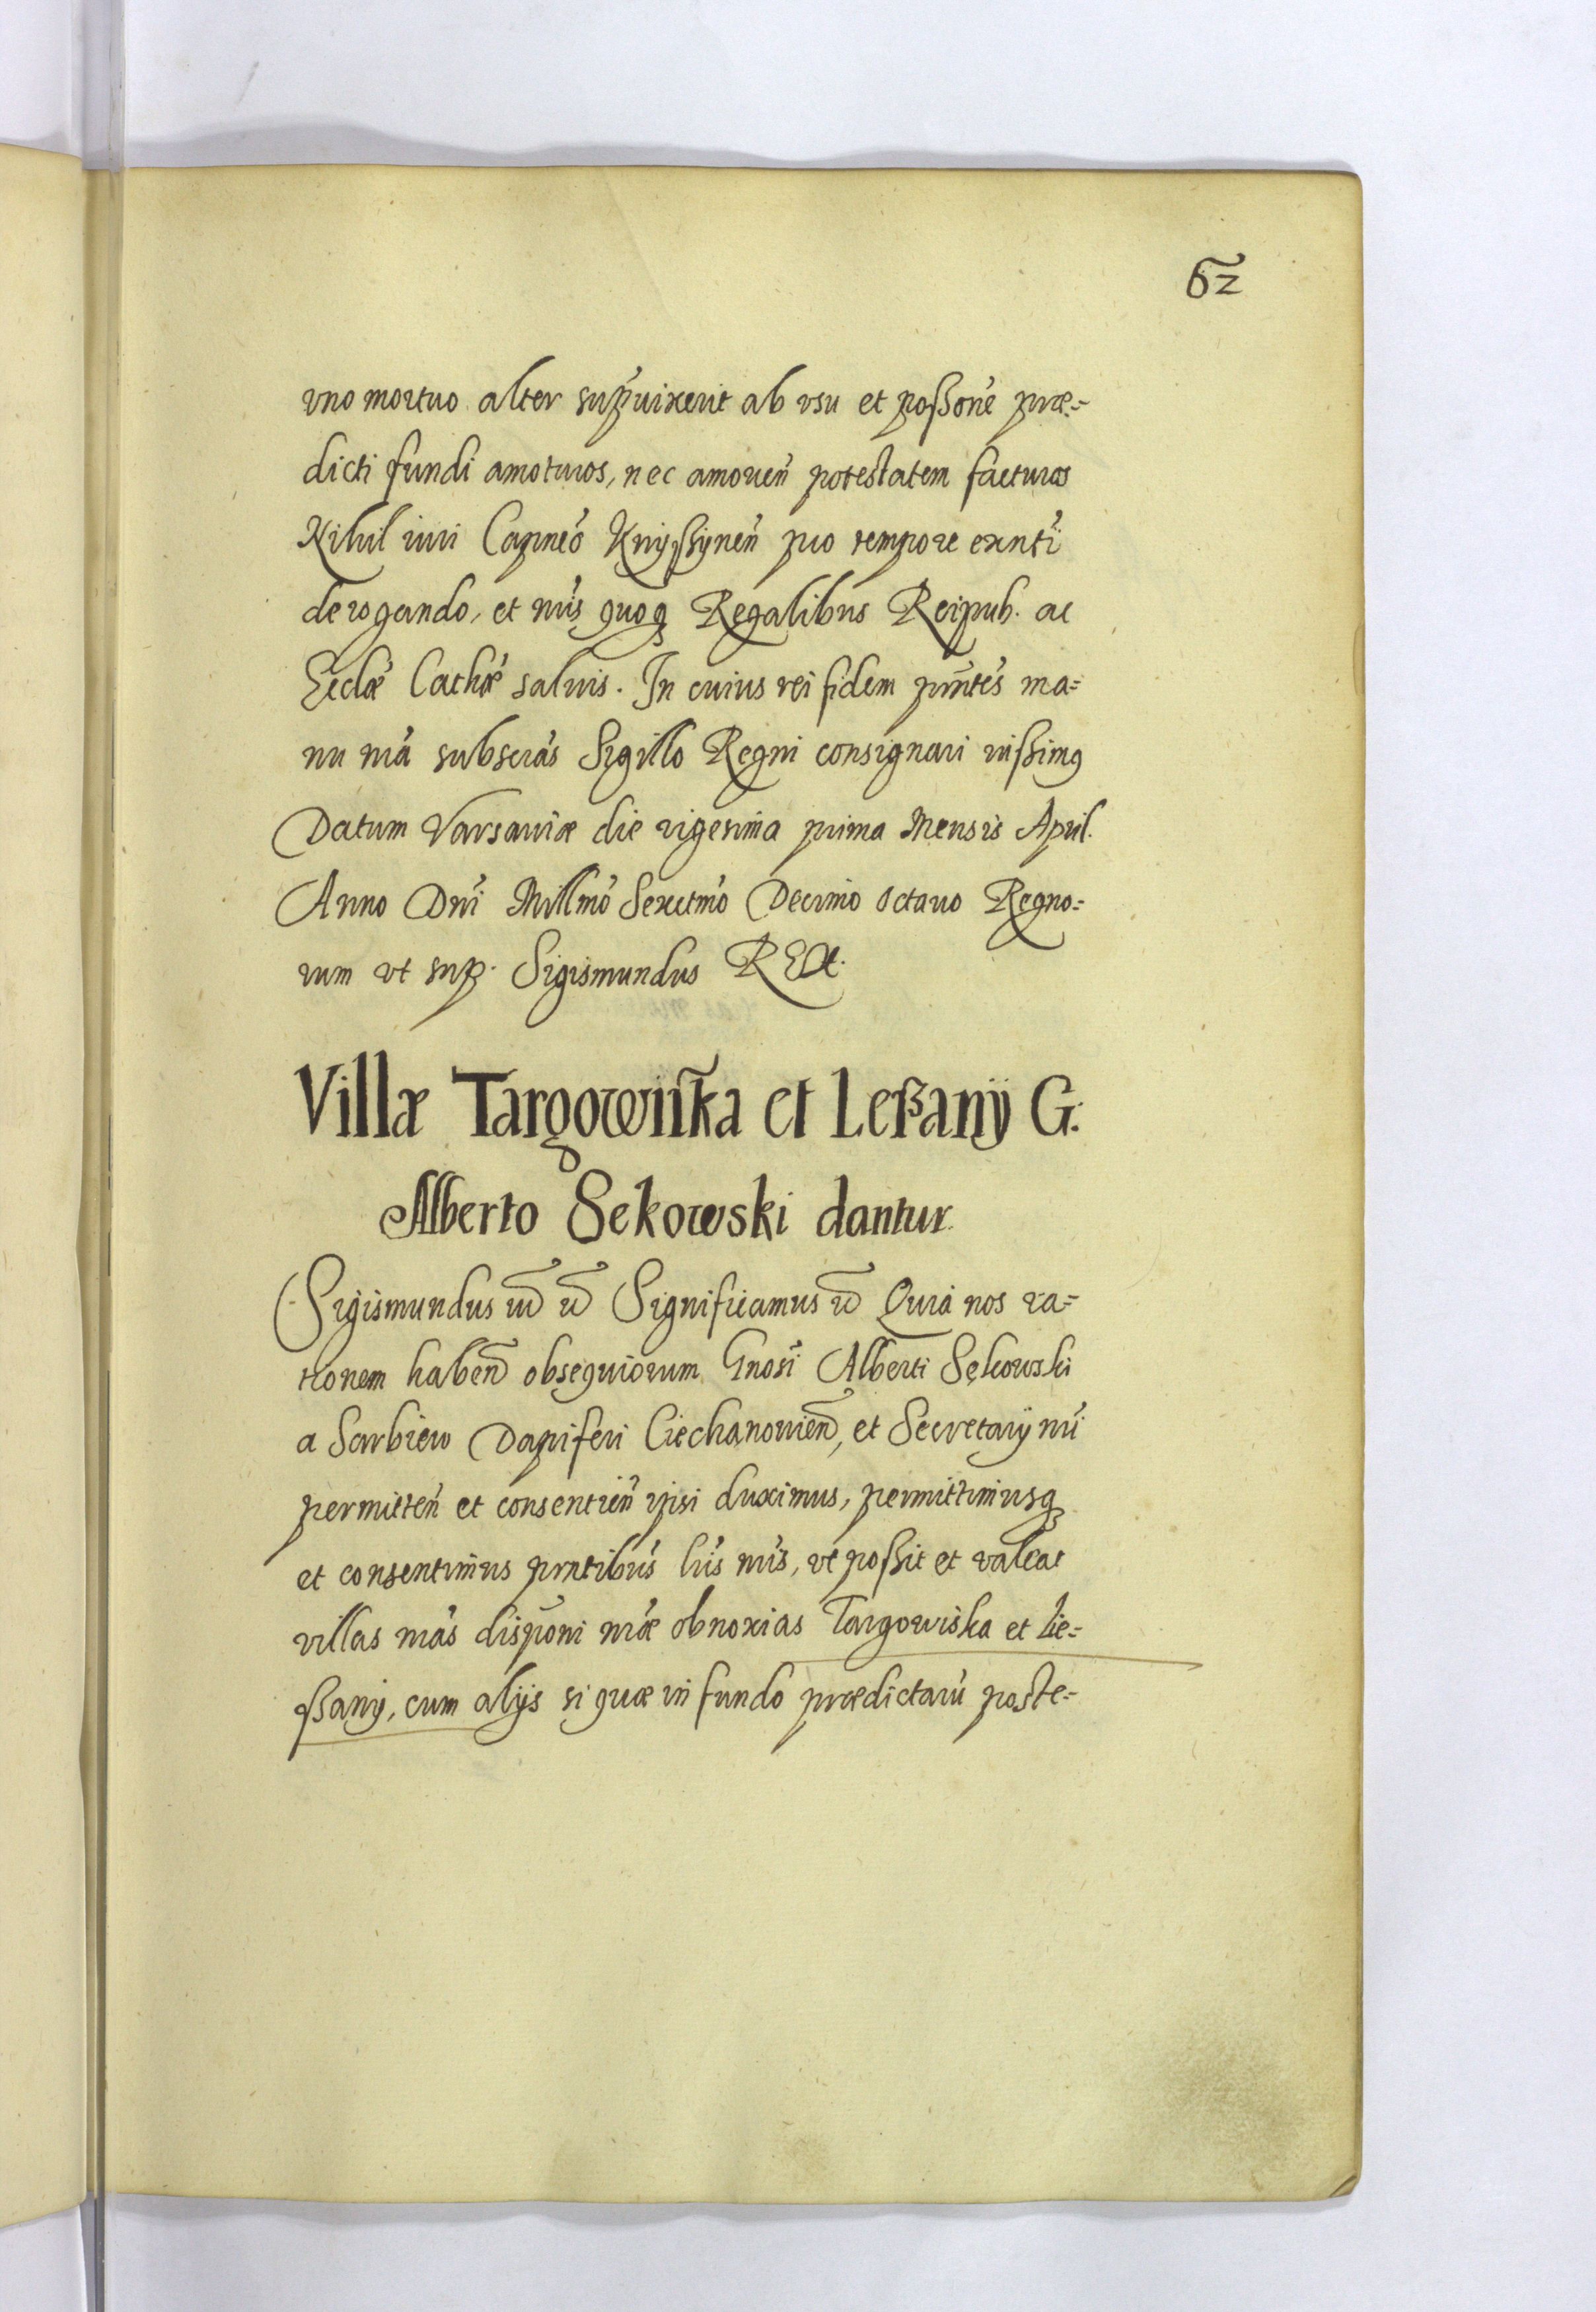 62
vno mortuo alter sup̃uixerit ab vsu et poßone præ=
dicti fundi amoturos, nec amouen̄ potestatem facturos
Nihil iuri Capneo Knyßynen̄ pro tempore exn̄ti
derogando, et nr̄is quoq Regalibus Reipub. ac
Ecclæ Cathæ saluis. In cuius rei fidem pr̄ntes ma=
nu nr̄a subscras Sigillo Regni consignari iußimq
Datum Varsauiæ die vigesima prima Mensis April.
Anno Dn̄i Millmo Sexctmo Decimo Octauo Regno=
rum vt sup. Sigismundus REX.
Villæ Targowiska et Leßany G.
Alberto Sekowski dantur
Sigismundus III etc Significamus etc Quia nos ra=
tionem haben̄ obsequiorum Gnosi Alberti Sękowski
a Sarbiew Dapiferi Ciechanowien̄, et Secretarij nr̄i
permitten̄ et consentien̄ ipsi duximus, permittimusq
et consentimus prntibus lr̄is nr̄is, vt poßit et valeat
villas nr̄as disponi nr̄æ obnoxias Targowiska et Lie=
ßany, cum alijs si quæ in fundo prædictarū poste=